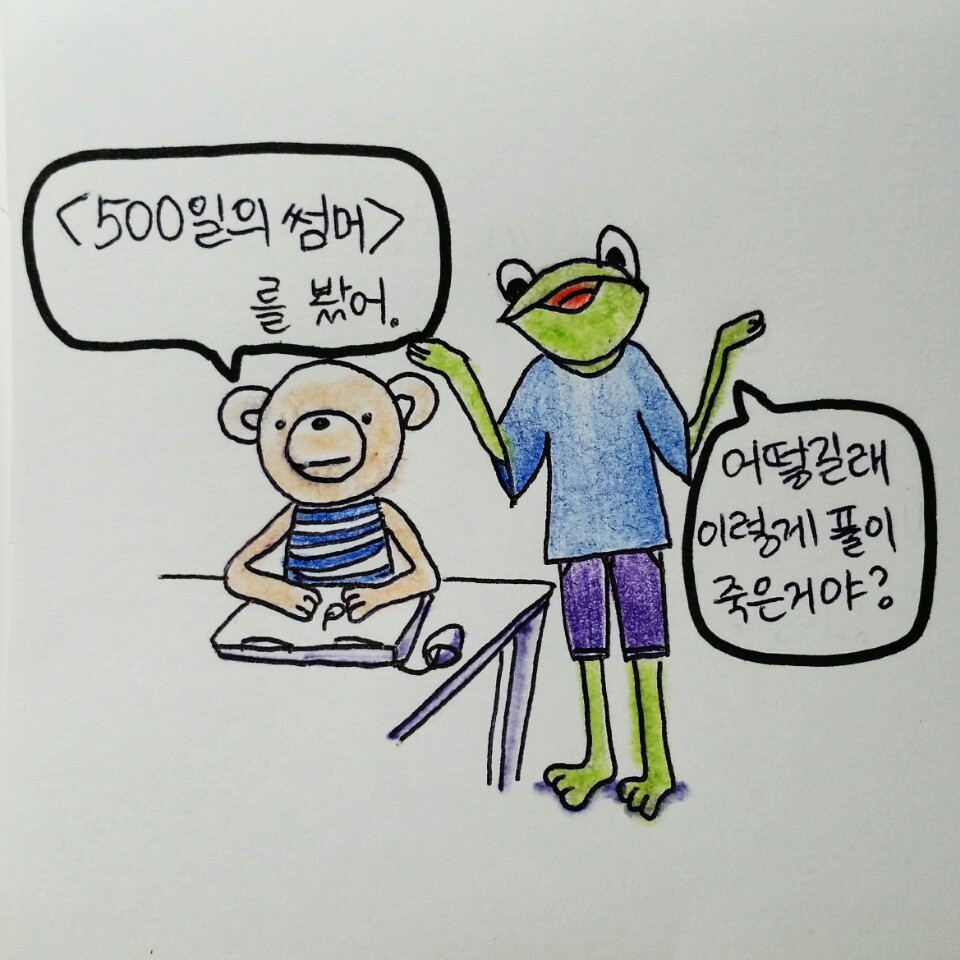 <500일의 썸머>
를 봤어.
어떻길래
이렇게 풀이
죽은거야?